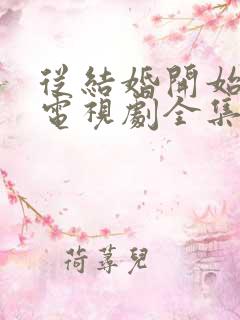 從結婚開始
電視劇全集
荷蕁兒